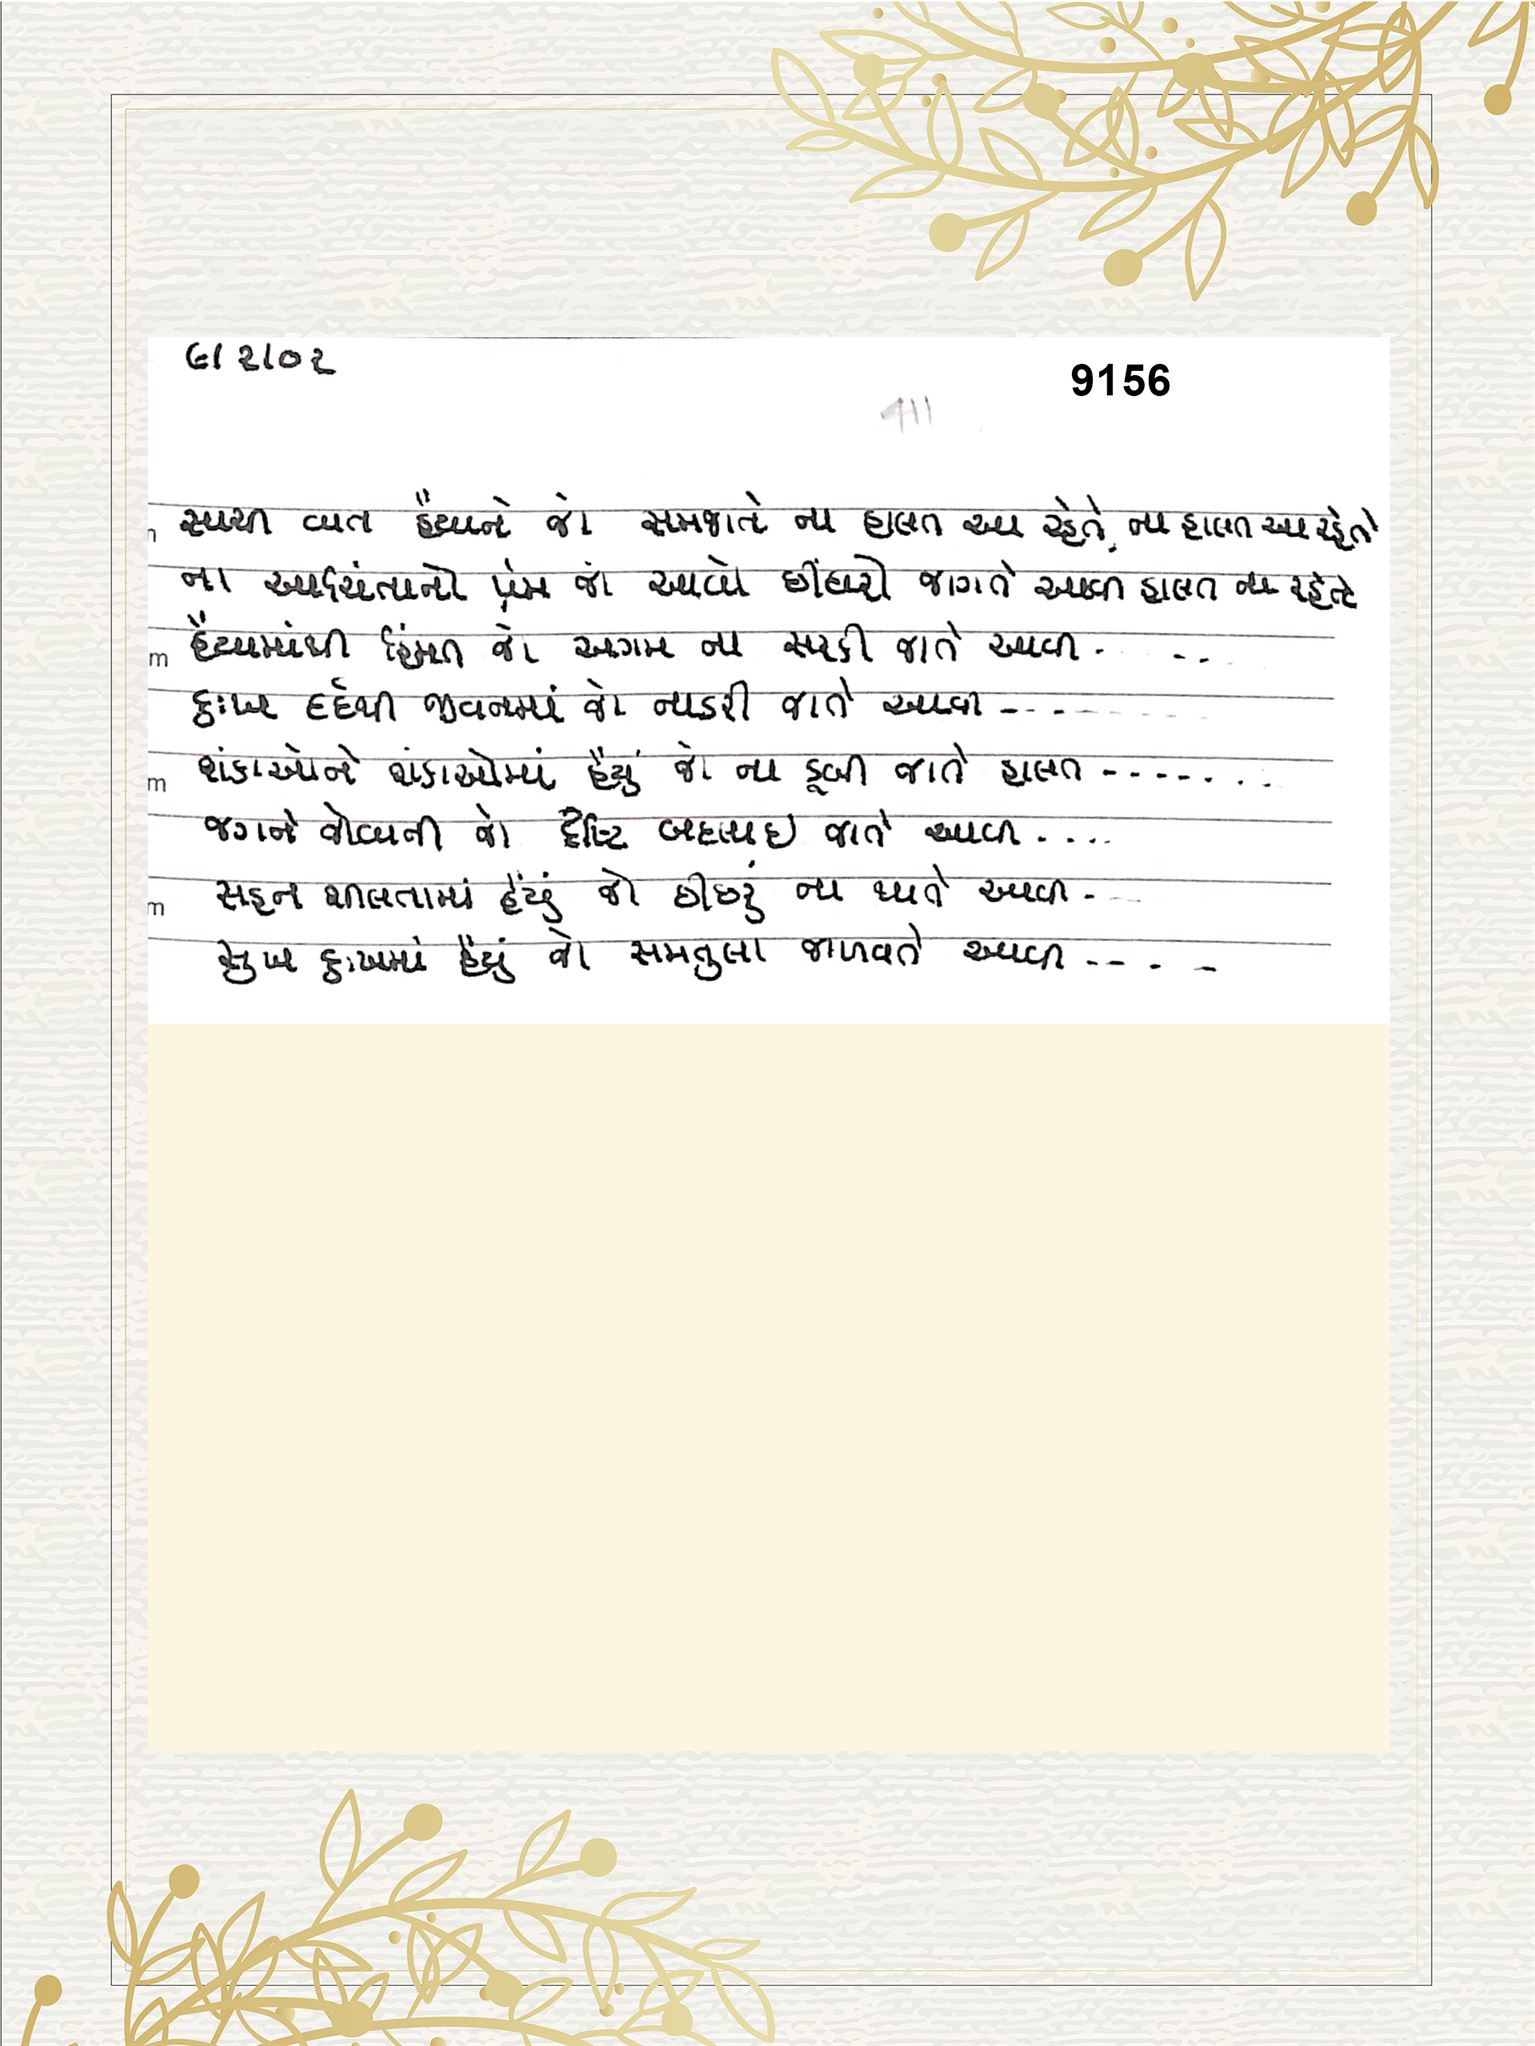 ૯।૨।૦૨
9156
સાચી વાત હૈયાને જો સમજાતે ના હાલત આ રહેતે, ના હાલત આ રહેતે
ના પ્રેમ જો આવો જાગતે આવી હાલત ના રહેતે
હૈયામાંથી હિંમત જો અગમ ના સરકી જાતે આવી. . . .
દુઃખ દર્દથી જીવનમાં જો નાકરી જાતે આવી -------
શંકાઓને શંકાઓમાં હૈયું જો ના ડૂબી જાતે હાલત -------
જગને જોવાની જો દૃષ્ટિ બદલાઈ જાતે આવી ....
સહન શીલતામાં હૈયું જો છીછરું ના થાતે આવી ----
સુખ દુઃખમાં હૈયું જો સમતુલા જાળવતે આવી -----